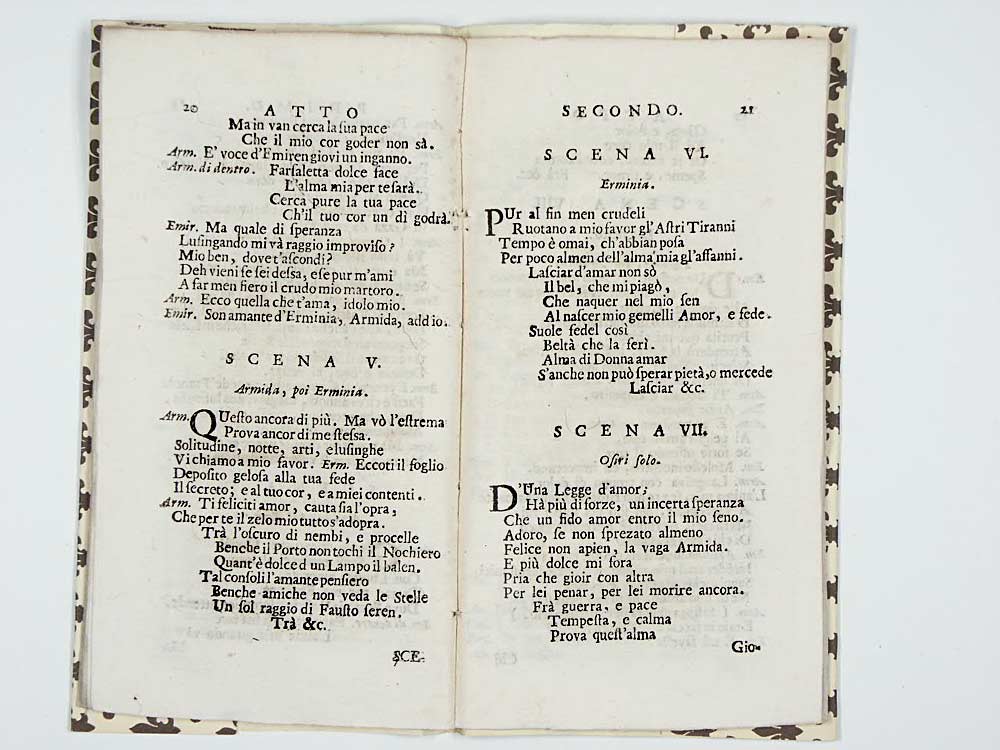 20 ATTO
Ma in van cerca la sua pace
Che il mio cor goder non sà.
Arm. E' voce d'Emiren giovi un inganno.
Arm. di dentro. Farfaletta dolce face
L'alma mia per te sarà.
Cerca pure la tua pace
Ch'il tuo cor un dì godrà.
Emir. Ma quale di speranza
Lusingando mi và raggio improviso?
Mio ben, dove t'ascondi?
Deh vieni se sei dessa, e se pur m'ami
A far men fiero il crudo mio martoro.
Arm. Ecco quella che t'ama, idolo mio.
Emir. Son amante d'Erminia, Armida, addio.
SCENA V.
Armida, poi Erminia.
Arm. QUesto ancora di più. Ma vò l'estrema
Prova ancor di me stessa.
Solitudine, notte, arti, e lusinghe
Vi chiamo a mio favor. Erm. Eccoti il foglio
Deposito gelosa alla tua fede
Il secreto; e al tuo cor, e a miei contenti.
Arm. Ti feliciti amor, cauta sia l'opra,
Che per te il zelo mio tutto s'adopra.
Trà l'oscuro di nembi, e procelle
Benche il Porto non tochi il Nochiero
Quant'è dolce d un Lampo il balen.
Tal consoli l'amante pensiero
Benche amiche non veda le Stelle
Un sol raggio di Fausto seren.
Trà &c.
SCE-
SECONDO. 21
SCENA VI.
Erminia.
PUr al fin men crudeli
Ruotano a mio favor gl'Astri Tiranni
Tempo è omai, ch'abbian posa
Per poco almen dell'alma mia gl'affanni.
Lasciar d'amar non sò
Il bel, che mi piagò,
Che naquer nel mio sen
Al nascer mio gemelli Amor, e fede.
Suole fedel così
Beltà che la ferì.
Alma di Donna amar
S'anche non può sperar pietà, o mercede
Lasciar &c.
SCENA VII.
Osiri solo.
D'Una Legge d'amor;
Hà più di forze, un incerta speranza
Che un fido amor entro il mio seno.
Adoro, se non sprezato almeno
Felice non apien, la vaga Armida.
E più dolce mi fora
Pria che gioir con altra
Per lei penar, per lei morire ancora.
Frà guerra, e pace
Tempesta, e calma
Prova quest'alma
Gio-